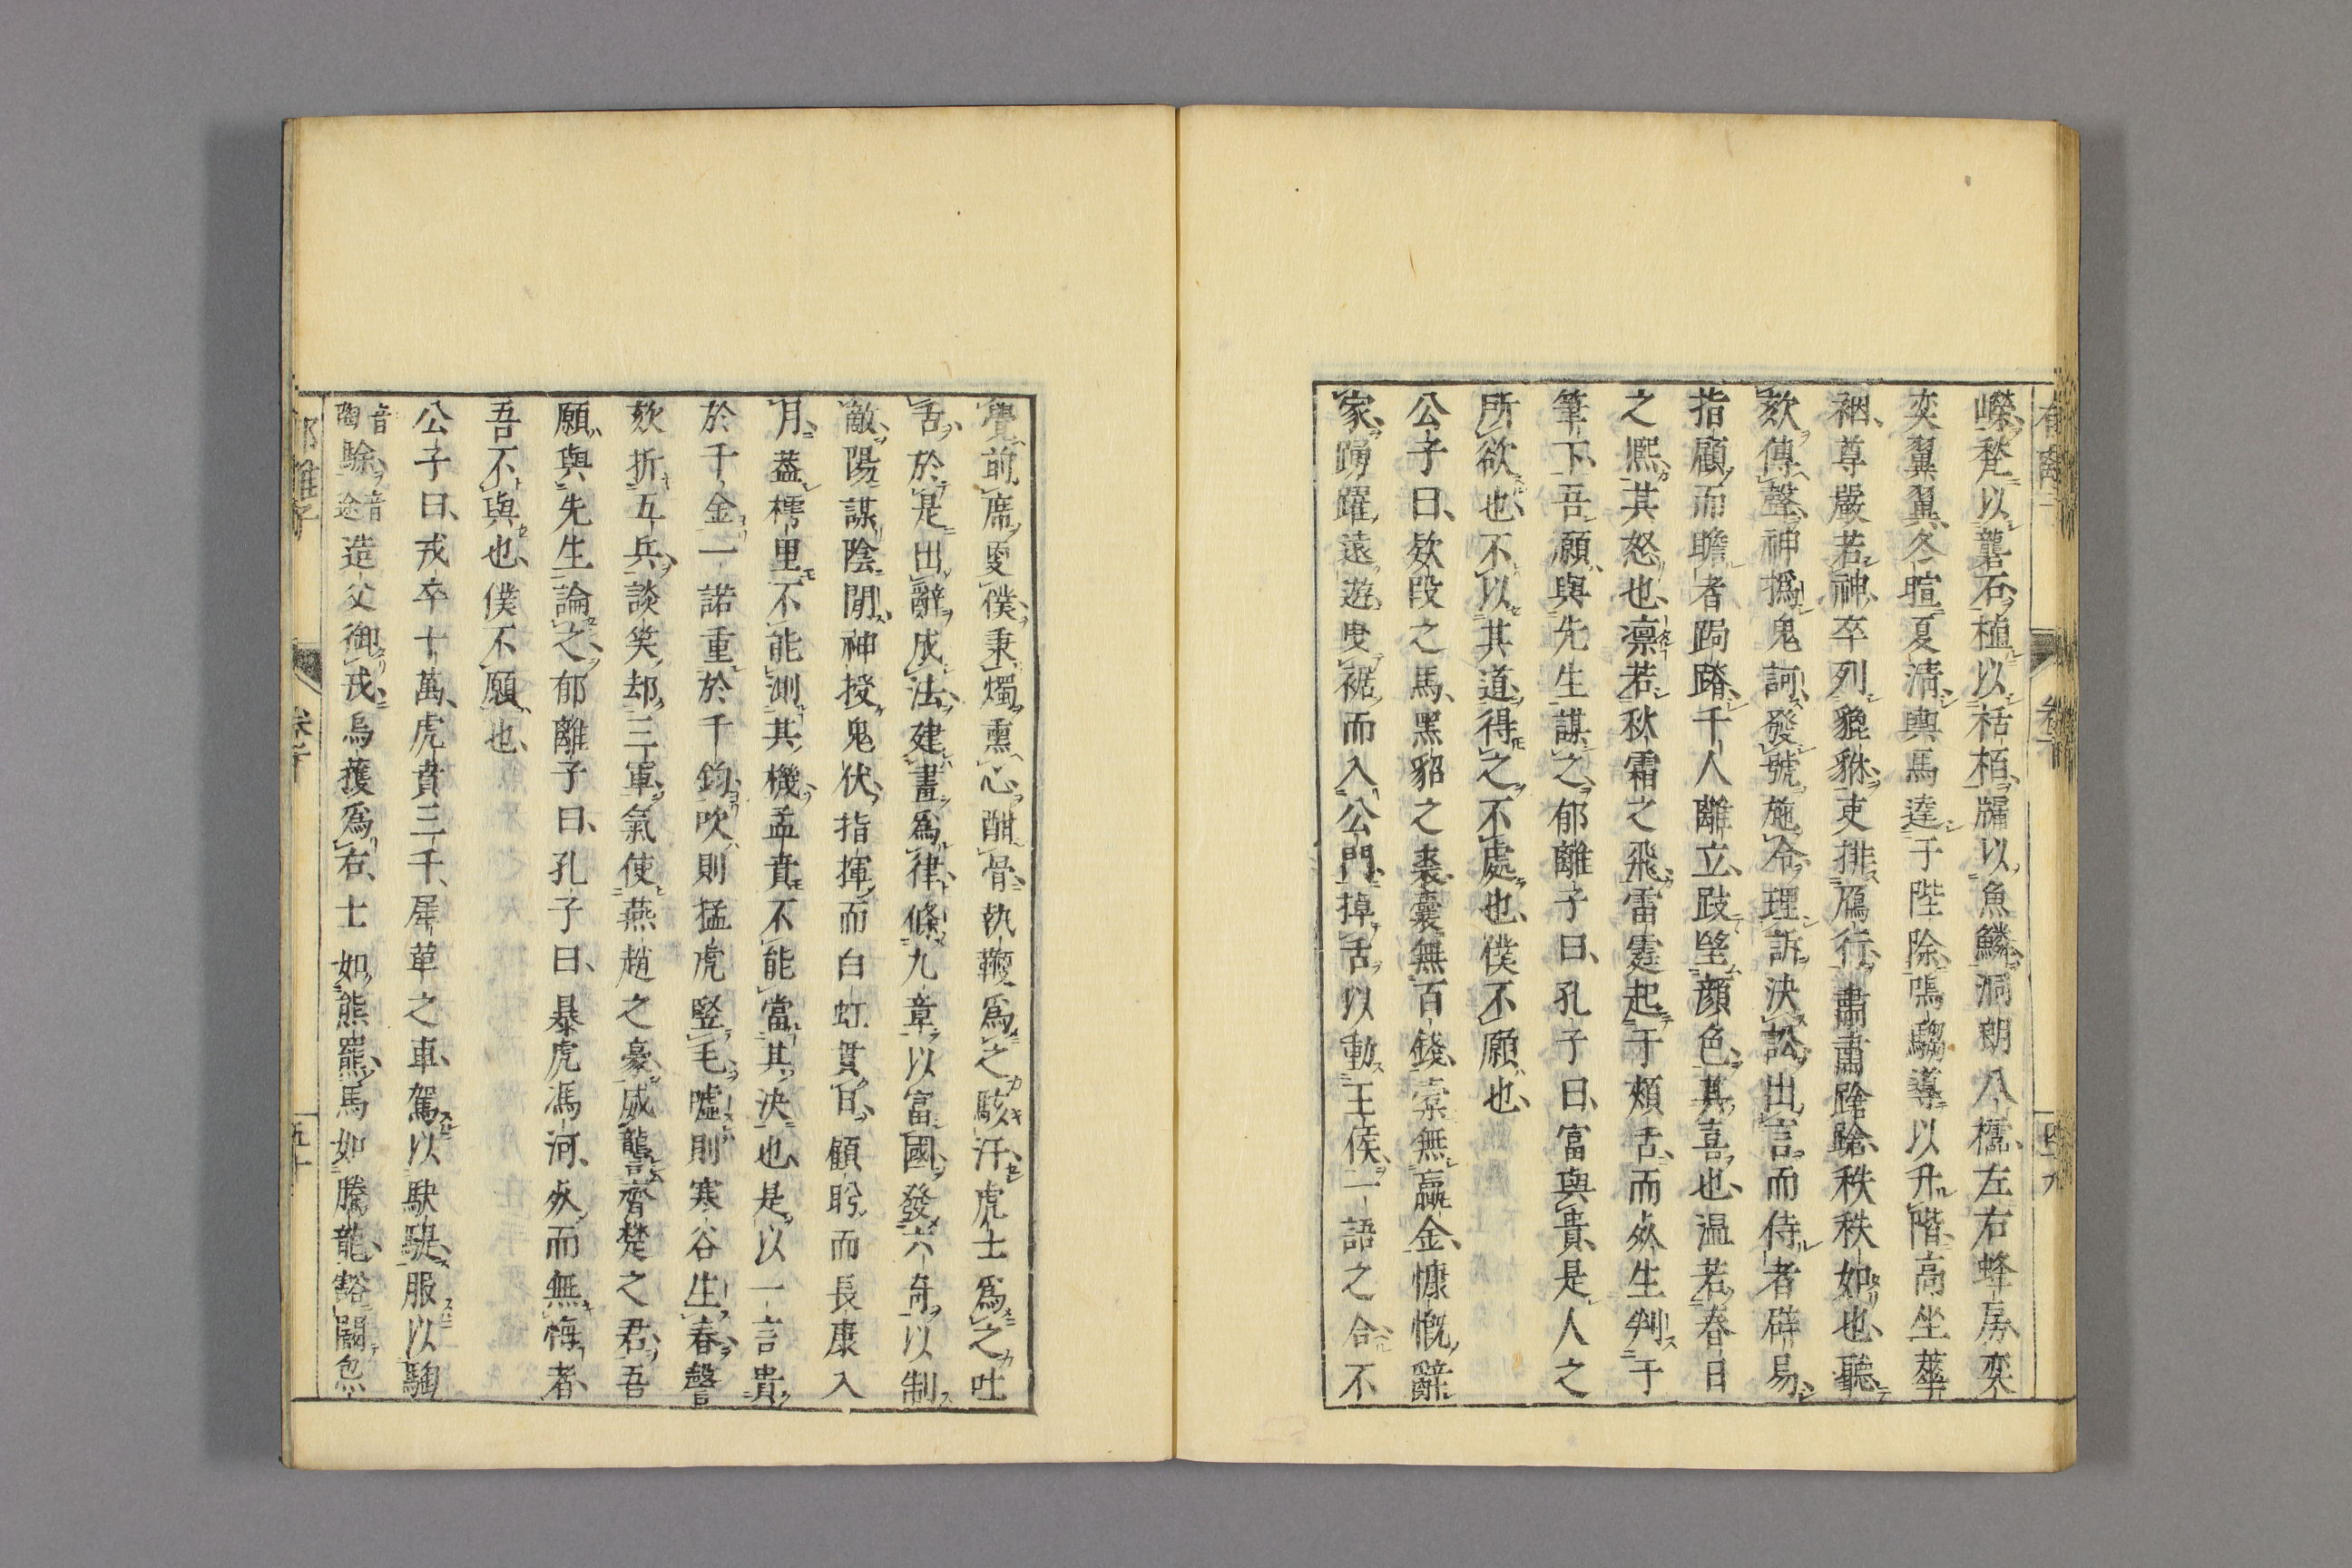 嶸甃以礱石植以栝栢牖以魚鱗洞朗八櫺左右蜂房奕
奕翼翼冬暄夏清輿馬達于陛除鳴騶導以升階高坐華
裀尊嚴若神卒列貔貅吏排鴈行肅肅蹌蹌秩秩如也聽
欬傳聲神撝鬼訶發號施令理訴決訟出言而侍者辟易
指顧而瞻者跼蹐千人離立跂望顔色其喜也温若春日
之熙其怒也凛若秋霜之飛雷霆起于頰舌而死生判于
筆下吾願與先生謀之郁離子曰孔子曰富與貴是人之
所欲也不以其道得之不處也僕不願也
公子曰欵段之馬黑貂之裘囊無百錢橐無贏金慷慨辭
家踴躍遠遊曳裾而入公門掉舌以動王侯一語之合不
覺前席更僕秉燭熏心酣骨執鞭爲之駭汗虎士爲之吐
舌於是出辭成法建畫爲律條九章以富國發六奇以制
敵陽謀陰閒神授鬼伏指揮而白虹貫日顧盻而長庚入
月葢樗里不能測其機孟賁不能當其決也是以一言貴
於千金一諾重於千鈞吹則猛虎竪毛噓則寒谷生春謦
欬折五兵談笑却三軍氣使燕趙之豪威讋齊楚之君吾
願與先生論之郁離子曰孔子曰暴虎馮河死而無悔者
吾不與也僕不願也
公子曰戎卒十萬虎賁三千犀革之車駕以駃騠服以騊
音陶駼音途造父御戎烏獲爲右士如熊羆馬如騰龍豁闞炰